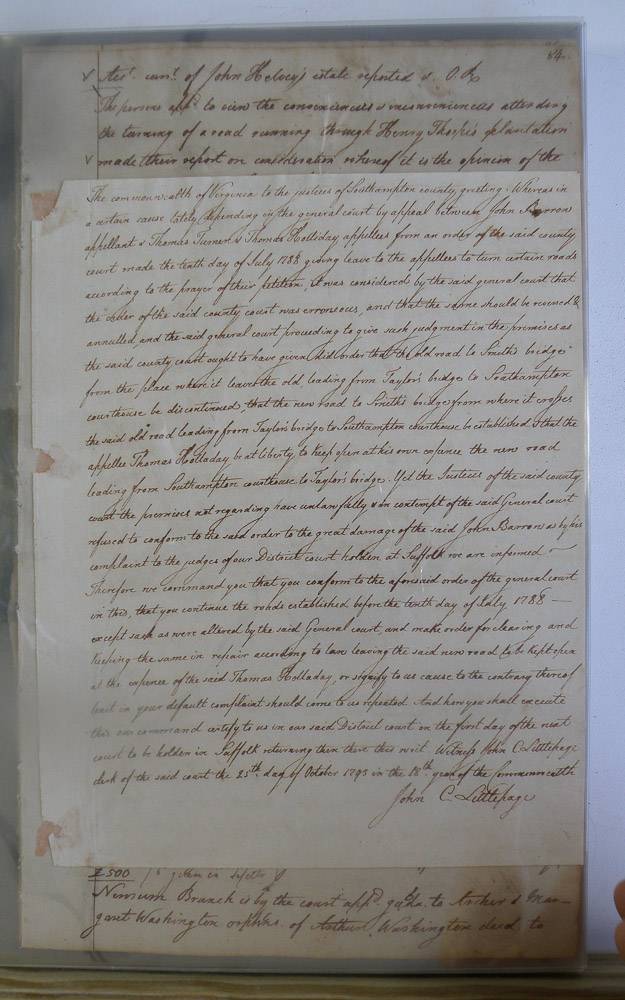 84.
Acc.t curr.t of John Helvey's estate reported & O.R.
The persons app.d to view the conveniencies & inconveniencies attending
the turning of a road running through Henry Thorpe's plantation
made their report on consideration whereof it is the opinion of the
The commonwealth of Virginia to the justices of Southampton county, greeting: Whereas in
a certain cause lately depending in the general court by appeal between John Barrow
appellant & Thomas Turner & Thomas Holliday appellees from an order of the said county
court made the tenth day of July 1788 giving leave to the appellees to turn certain roads
according to the prayer of their petition, it was considered by the said general court that
the order of the said county court was erroneous, and that the same should be reversed &
annulled, and the said general court proceeding to give such judgment in the premises as
the said county court ought to have given did order that the old road to Smith's bridge
from the place where it leaves the old, leading from Taylor's bridge to Southampton
courthouse be discontinued, that the new road to Smith's bridge from where it crosses
the said old road leading from Taylor's bridge to Southampton courthouse be established & that the
appellee Thomas Holladay be at liberty to keep open at his own expence the new road
leading from Southampton courthouse to Taylor's bridge. Yet the Justices of the said county
court the premises not regarding have unlawfully & in contempt of the said General court
refused to conform to the said order to the great damage of the said John Barrow as by his
complaint to the judges of our District court holden at Suffolk we are informed
Therefore we command you that you conform to the aforesaid order of the general court
in this, that you continue the roads established before the tenth day of July 1788
except such as were altered by the said General court, and make order for clearing and
keeping the same in repair according to law leaving the said new road to be kept open
at the expence of the said Thomas Holladay, or signify to us cause to the contrary thereof
least in your default complaint should come to us repeated. And how you shall execute
this our command certify to us in our said District court on the first day of the next
court to be holden in Suffolk returning then there this writ. Witness John C. Littlepage
clerk of the said court the 25th day of October 1793 in the 18th year of the Commonwealth
John C. Littlepage
£500
Newsum Branch is by the court app.d gu'd'n. to Archer & Mar-
garet Washington orphans of Arthur Washington decd. to